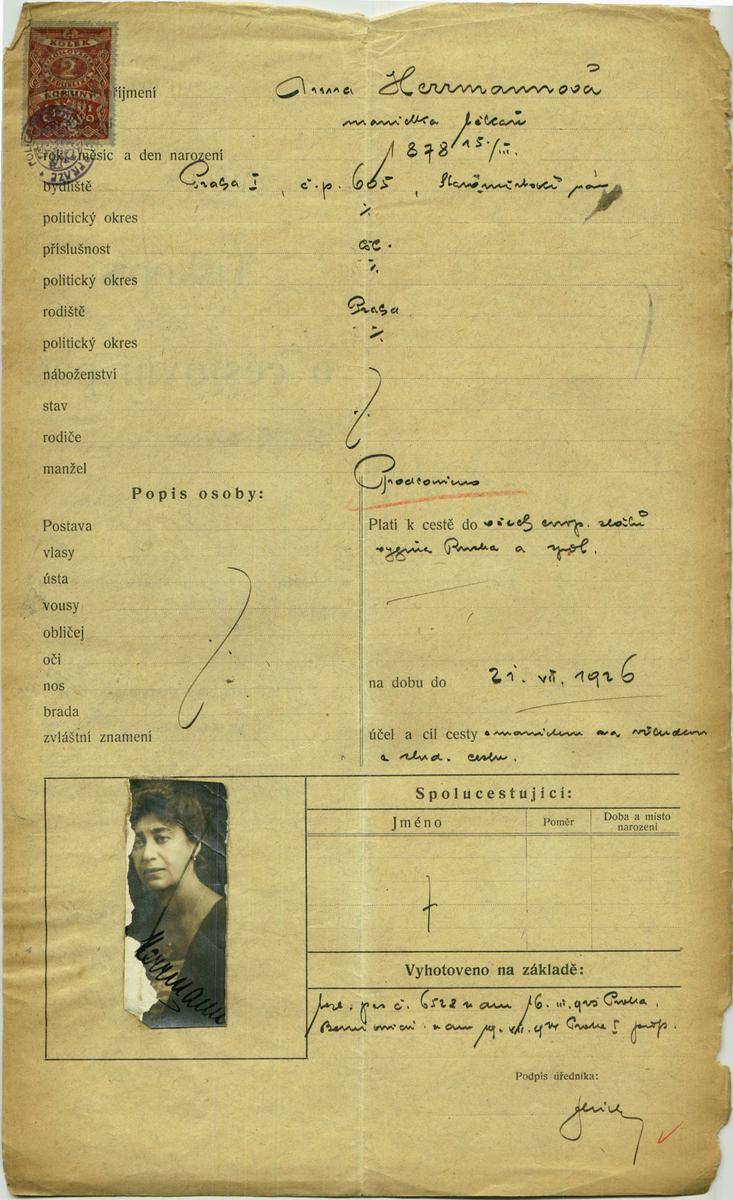 KOLEK
2
KORUNY
říjmení Anna Herrmannová
manželka lékaře
rok, měsíc a den narození 1878 15./III.
bydliště Praha I, č.p. 605, Staroměstské nám
politický okres ./.
příslušnost čsl.
politický okres ./.
rodiště Praha
politický okres ./.
náboženství
stav ./.
rodiče
manžel
Popis osoby:
Postava
vlasy
ústa
vousy
obličej
oči
nos
brada
zvláštní znamení
Platí k cestě do všech evrop. států
vyjma Ruska a
na dobu do 21. VII. 1926
účel a cíl cesty s manželem na
a stud. cestu.
Herrmann
Spolucestující:
Jméno
Poměr
Doba a místo
narození
Vyhotoveno na základě:
pas č. 6528 16. III. 923 Praha.
Praha I
Podpis úředníka: